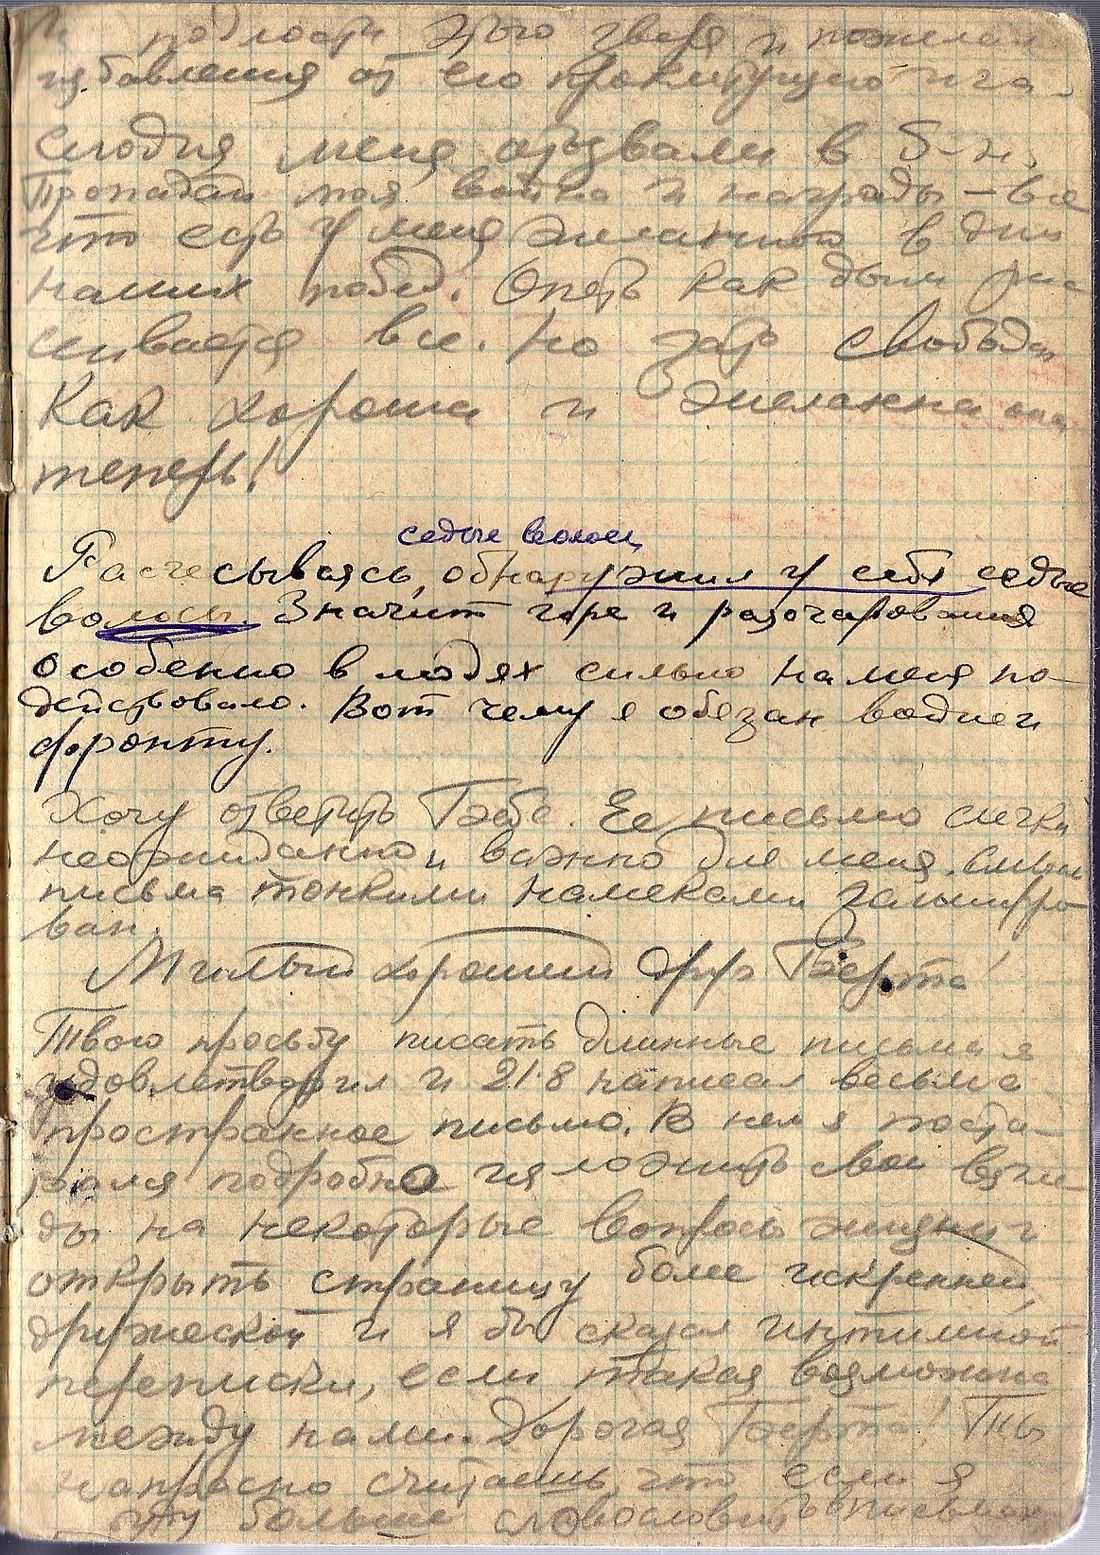 подлости этого гвардии и пожелал
избавления от его проклятущего ига.
Сегодня меня отозвали в б-н.
Пропадай моя водка и награды – все
что есть у меня желанного в дни
наших побед. Опять как дым рас
сеивается все. Но зато свобода.
Как хороша и желанна она
теперь!
седые волосы
Расчесываясь, обнаружил у себя седые
волосы. Значит горе и разочарования
особенно в людях сильно на меня по-
действовало. Вот чему я обязан
фронту.
Хочу ответить Бэбе. Ее письмо
неожиданно и важно для меня. Смысл
письма тонкими намеками зашифро
ван.
Милый хороший друг Бэрта!
Твою просьбу писать длинные письма я
удовлетворил и 21.8 написал весьма
пространное письмо. В нем я поста-
рался подробно изложить свои взгля-
ды на некоторые вопросы жизни и
открыть страницу более искренней,
дружеской и я бы сказал интимной
переписки, если такая возможна
между нами. Дорогая Бэрта! Ты
напрасно считаешь, что если я
больше в письмах